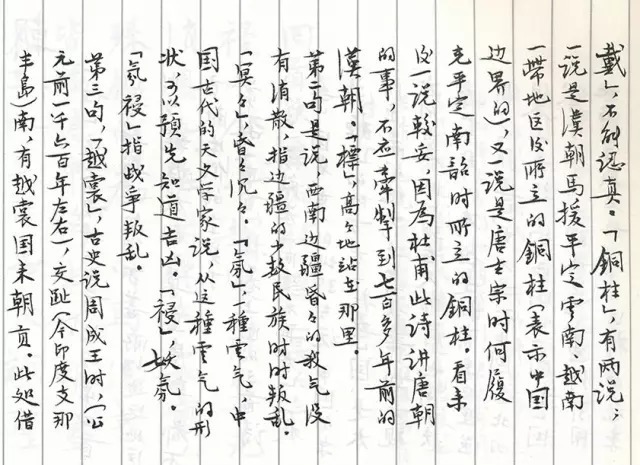 戴」，不能認真。「銅柱」，有两说；
一说是漢朝馬援平定雲南、越南
一帶地区後所立的銅柱（表示中国
边界的），又一说是唐玄宗时何履
光平定南韶时所立的銅柱。看来
後一说較妥，因為杜甫此诗讲唐朝
的事，不应牽掣到七百多年前的
漢朝。「標」，高々地站在那里。
第二句是说，西南边疆昏々的氛气没
有消散，指边疆的少数民族时时叛乱。
「冥々」，昏々沉々。「氛」，一種雲气，中
国古代的天文学家说，从这種雲气的形
状，可以預先知道吉凶。「祲」，妖氛。
「氛祲」指战爭叛乱。
第三句，「越裳」，古史说周成王时，（公
元前一千一百年左右），交趾（今印度支那
半島）南，有越裳国来朝貢。此处借